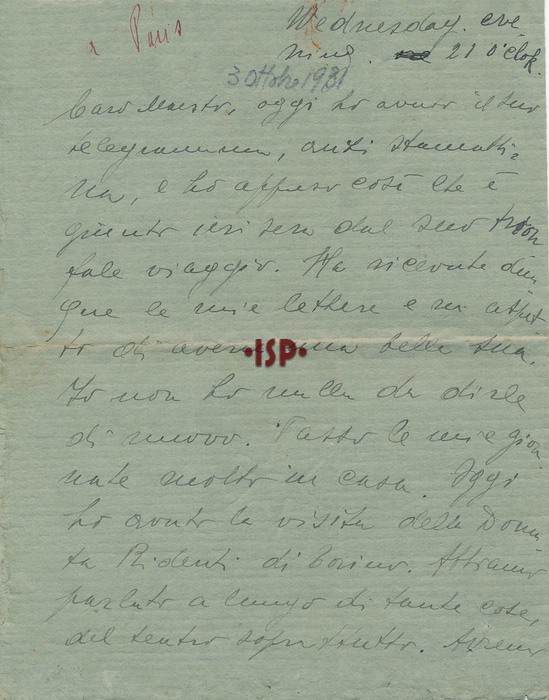 a Paris
Wednesday. eve
ning. 21 o'clok.
3 Ottobre 1931
Caro Maestro, oggi ho avuto il suo
telegramma, anzi stamatti=
na, e ho appreso così che è
giunto ieri sera dal suo trion
fale viaggio. Ha ricevute dun
que le mie lettere e mi aspet
to di avere una della sua.
Io non ho nulla da dirle
di nuovo. Passo le mie gior
nate molto in casa. Oggi
ho avuto la visita della Dona
ta Ridenti di Torino. Abbiamo
parlato a lungo di tante cose,
del teatro soprattutto. Avremo
•ISP•